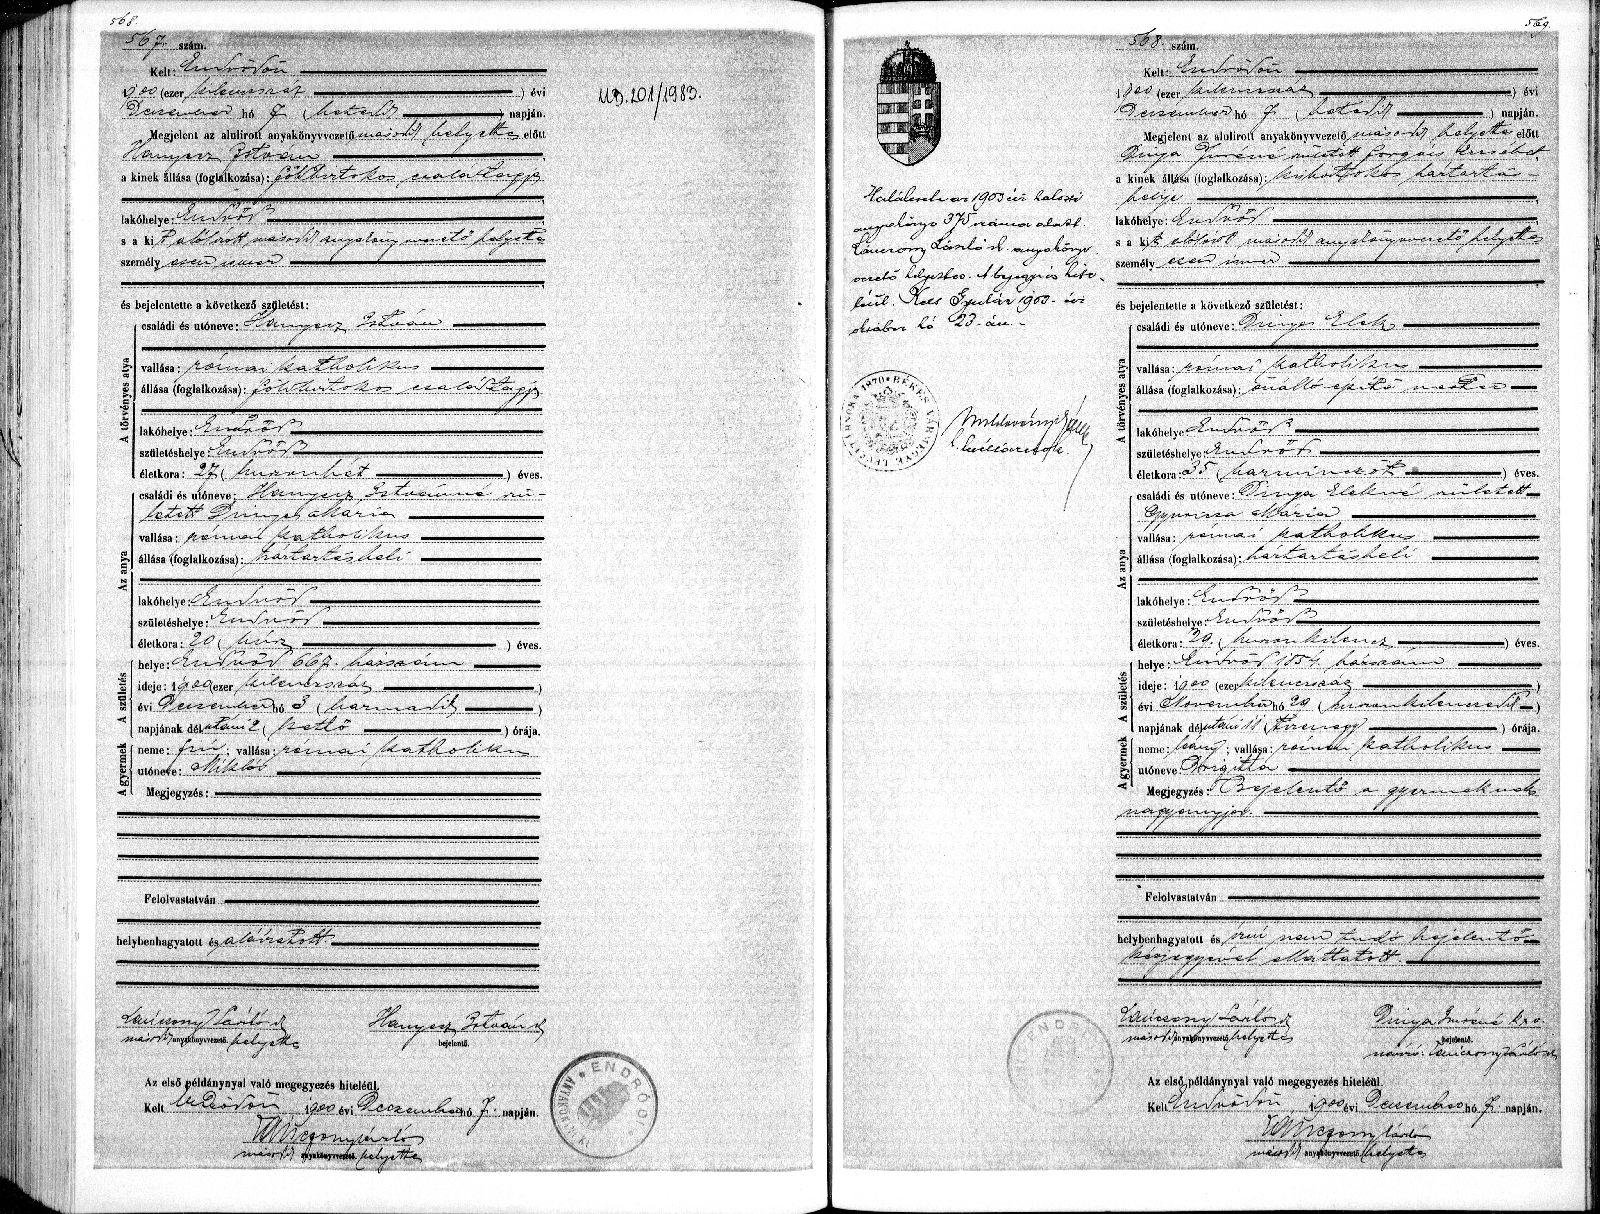 568.
567. szám.
Kelt: Endrődön
1900 (ezer kilencszáz ) évi
Deczember hó 7 (hetedik ) napján.
Megjelent az alulirott anyakönyvvezető második helyettes előtt
Hanyecz István
a kinek állása (foglalkozása): földbirtokos családtagja
lakóhelye: Endrőd
s a kit alólírott második anyakönyvvezető helyettes
személyesen ismer
és bejelentette a következő születést:
A törvényes atya
családi és utóneve: Hanyecz István
vallása: római katholikus
állása (foglalkozása): földbirtokos családtagja
lakóhelye: Endrőd
születéshelye: Endrőd
életkora: 27 (huszonhét ) éves.
Az anya
családi és utóneve: Hanyecz Istvánné szü-
letett Dinya Mária
vallása: római katholikus
állása (foglalkozása): háztartásbeli
lakóhelye: Endrőd
születéshelye: Endrőd
életkora: 20 (húsz ) éves.
A születés
helye: Endrőd 667. házszám
ideje: 1900 (ezer kilencszáz )
évi Deczember hó 3 (harmadik )
napjának délutáni 2 (kettő ) órája.
A gyermek
neme: fiú; vallása: római katholikus
utóneve: Miklós
Megjegyzés:
Felolvastatván
helybenhagyatott és aláíratott.
Láncsony László
második anyakönyvvezető helyettes
Hanyecz István
bejelentő.
Az első példánynyal való megegyezés hiteléül.
Kelt Endrődön 1900 évi Deczember hó 7. napján.
második anyakönyvvezető helyettes
ENDRŐDI
UD.201/1983.
569.
Halálesete az 1903 évi halotti
anyakönyv 375 száma alatt.
vezető helyettes. A bejegyzés hite-
léül. Kelt Gyulán 1903. évi
október hó 23-án.
BÉKÉS VÁRMEGYE LEVÉLTÁRNOKA 1870
568. szám.
Kelt: Endrődön
1900 (ezer kilencszáz ) évi
Deczember hó 7. (hetedik ) napján.
Megjelent az alulirott anyakönyvvezető második helyettes előtt
Dinya Imréné született Forgács Erzsébet,
a kinek állása (foglalkozása): háztartás-
belje
lakóhelye: Endrőd
s a kit alólírott második anyakönyvvezető helyettes
személyesen ismer
és bejelentette a következő születést:
A törvényes atya
családi és utóneve: Dinya Elek
vallása: római katholikus
állása (foglalkozása): önálló építő mester
lakóhelye: Endrőd
születéshelye: Endrőd
életkora: 35 (harminczöt ) éves.
Az anya
családi és utóneve: Dinya Elekné született
Mária
vallása: római katholikus
állása (foglalkozása): háztartásbeli
lakóhelye: Endrőd
születéshelye: Endrőd
életkora: 29. (huszonkilencz ) éves.
A születés
helye: Endrőd 1054. házszám
ideje: 1900 (ezer kilencszáz )
évi November hó 29 (huszonkilenczedik )
napjának délutáni 11 (tizenegy ) órája.
A gyermek
neme: leány; vallása: római katholikus
utóneve: Brigitta
Megjegyzés: Bejelentő a gyermeknek
nagyanyja.
Felolvastatván
helybenhagyatott és írni nem tudó bejelentő
kézjegyével elláttatott.
Láncsony László
második anyakönyvvezető helyettes
Dinya Imréné kxv.
bejelentő.
Az első példánynyal való megegyezés hiteléül.
Kelt Endrődön 1900 évi Deczember hó 7. napján.
második anyakönyvvezető helyettes
ENDRŐDI